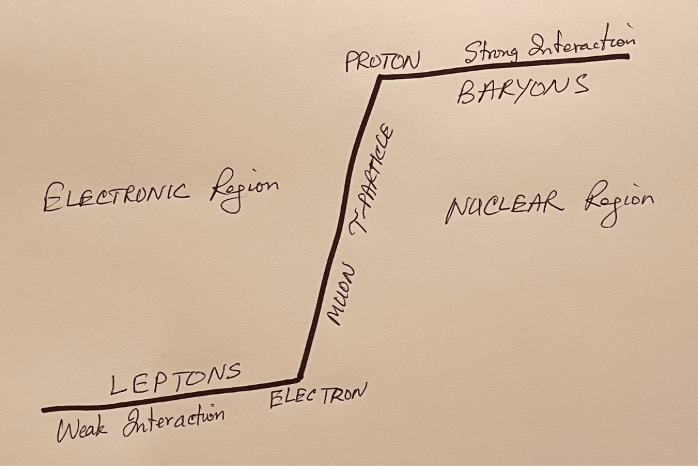 PROTON Strong Interaction
BARYONS
ELECTRONIC Region
τ-PARTICLE
NUCLEAR Region
MUON
LEPTONS
ELECTRON
Weak Interaction